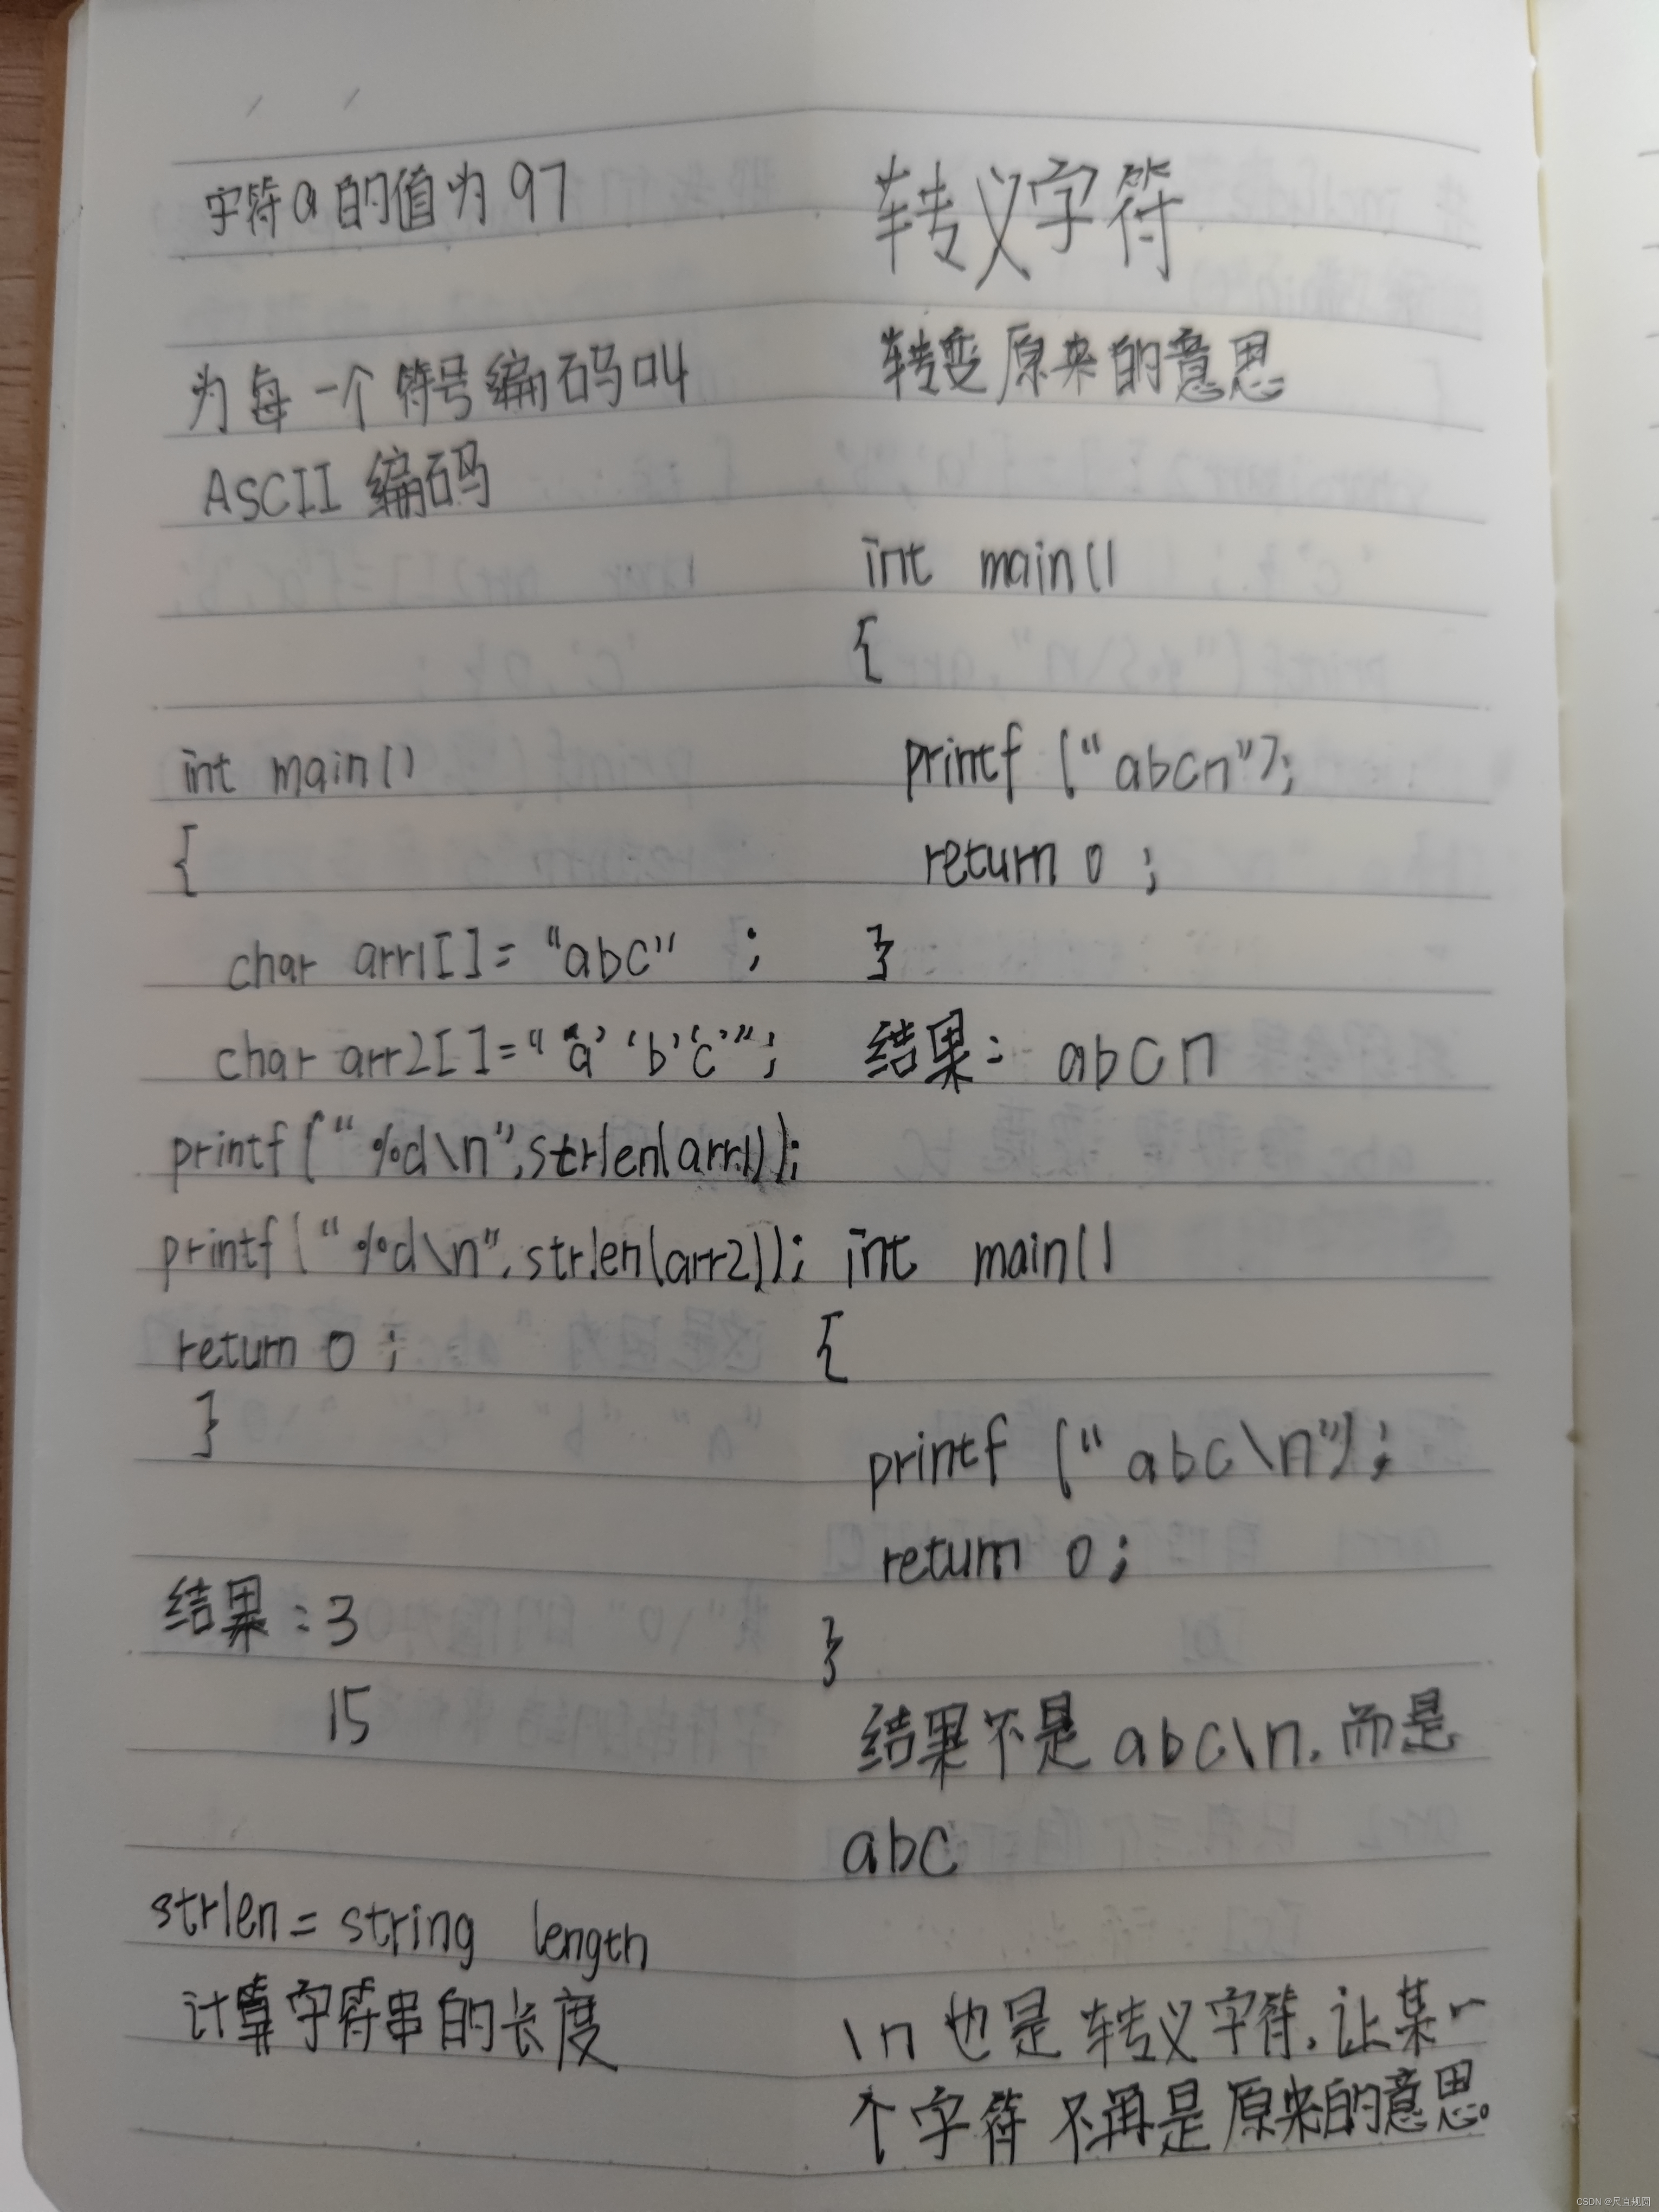 字符a的值为97
为每一个符号编码叫
ASCII 编码
int main()
{
char arr1[]= "abc" ;
char arr2[]="'a' 'b''c'";
printf("%d\n",strlen(arr1));
printf("%d\n",strlen(arr2));
return 0 ;
}
结果:3
15
strlen=string length
计算字符串的长度
转义字符
转变原来的意思
int main()
{
printf ("abcn");
return 0 ;
}
结果: abcn
int main()
{
printf ("abc\n");
return 0;
}
结果不是abc\n,而是
abc
\n也是转义字符,让某一
个字符不再是原来的意思。
CSDN @尺直规圆